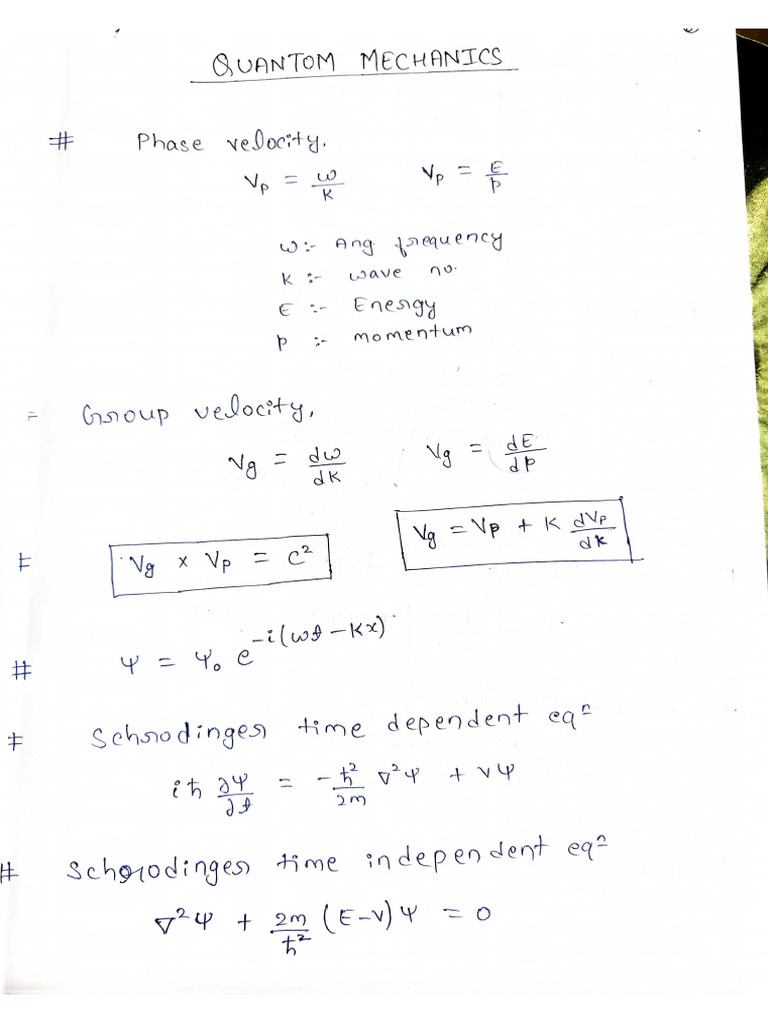 QUANTOM MECHANICS
# Phase velocity.
Vp = ω/k Vp = E/p
ω:- Ang frequency
K :- wave no.
E :- Energy
p :- momentum
= Group velocity,
Vg = dω/dk Vg = dE/dp
Vg × Vp = C² Vg = Vp + K dVp/dk
# Ψ = Ψ₀ e^-i(ωt - Kx)
# Schrodinger time dependent eqⁿ
iħ ∂Ψ/∂t = -ħ²/2m ∇²Ψ + VΨ
# Schorodinger time independent eqⁿ
∇²Ψ + 2m/ħ² (E-V)Ψ = 0